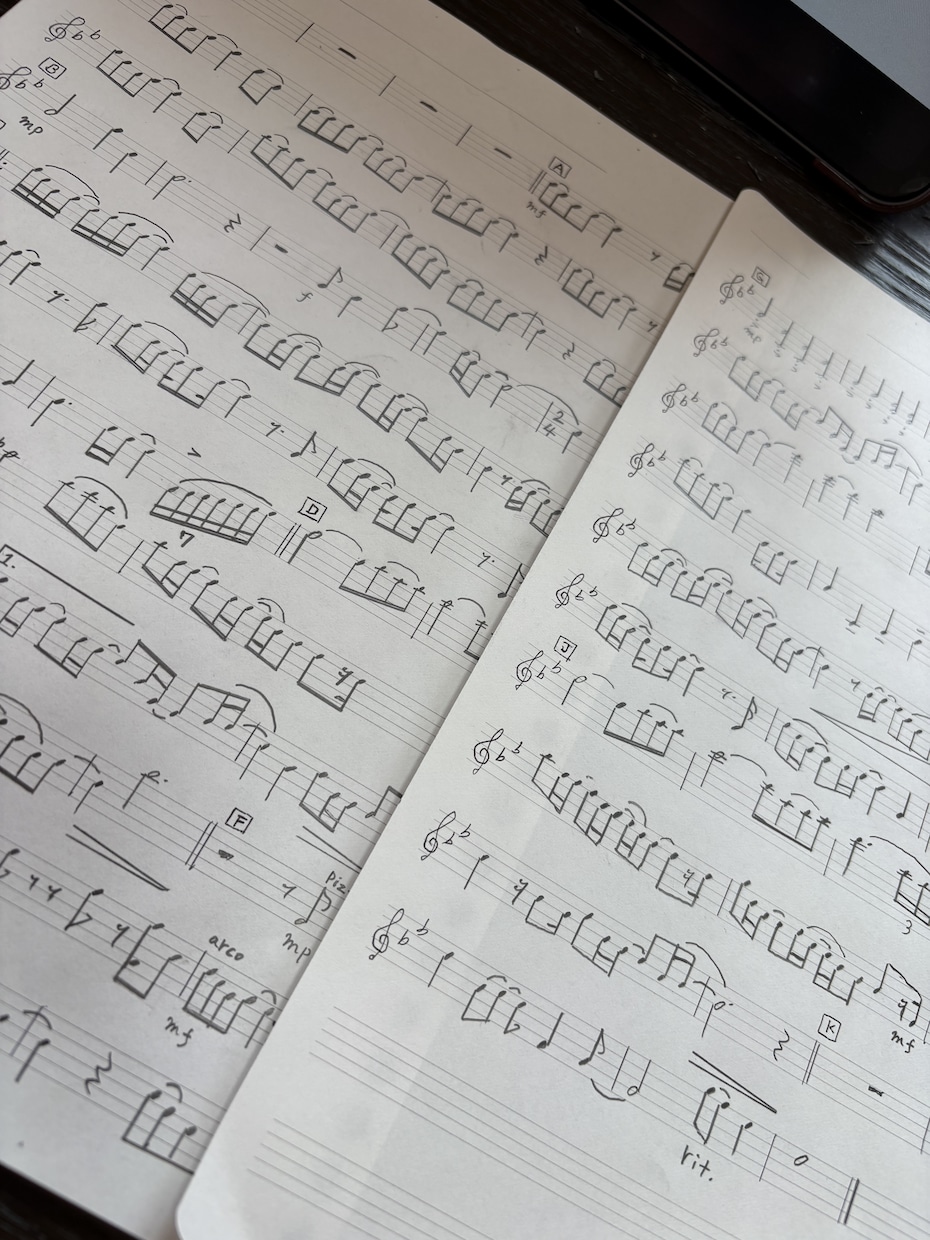 A
mf
B
mp
f
2
4
>
7
D
1.
F
piz
mp
arco
mf
G
mp
J
3
mf
K
rit.